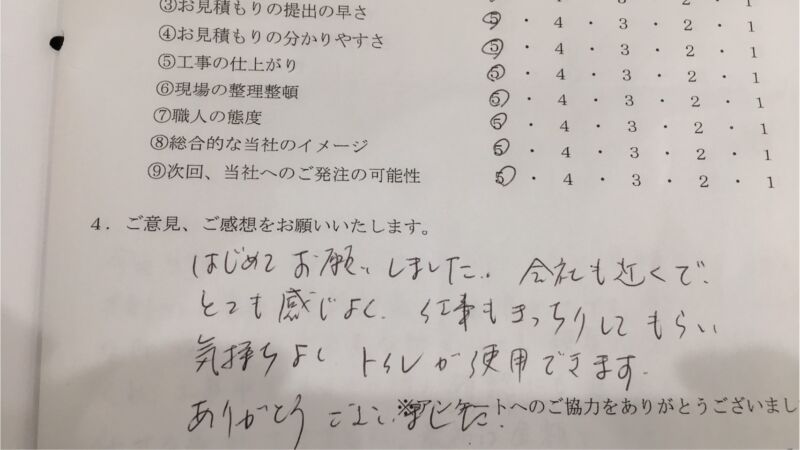 ③お見積もりの提出の早さ 5・4・3・2・1
④お見積もりの分かりやすさ 5・4・3・2・1
⑤工事の仕上がり 5・4・3・2・1
⑥現場の整理整頓 5・4・3・2・1
⑦職人の態度 5・4・3・2・1
⑧総合的な当社のイメージ 5・4・3・2・1
⑨次回、当社へのご発注の可能性 5・4・3・2・1
4．ご意見、ご感想をお願いいたします。
はじめてお願いしました。会社も近くで、
とても感じよく、仕事もきっちりしてもらい
気持ちよく トイレが使用できます。
ありがとうございました。
※アンケートへのご協力をありがとうございまし